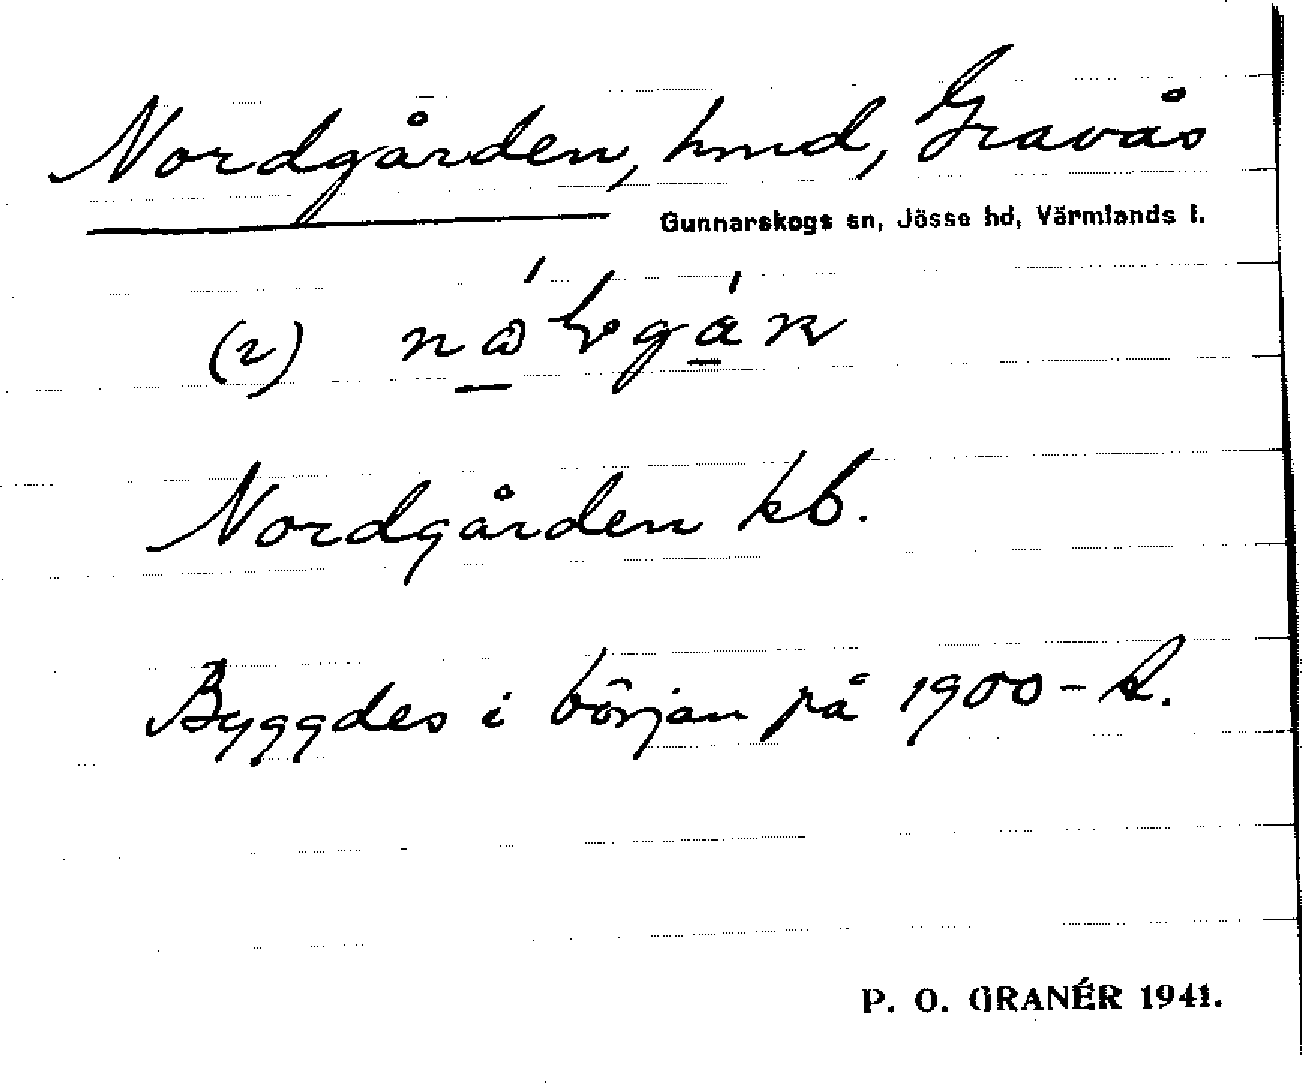 Nordgården, hmd, Gravås
Gunnarskogs sn, Jösse hd, Värmlands l.
(2)
Nordgården kb.
Byggdes i början på 1900-t.
P. O. GRANÉR 1941.